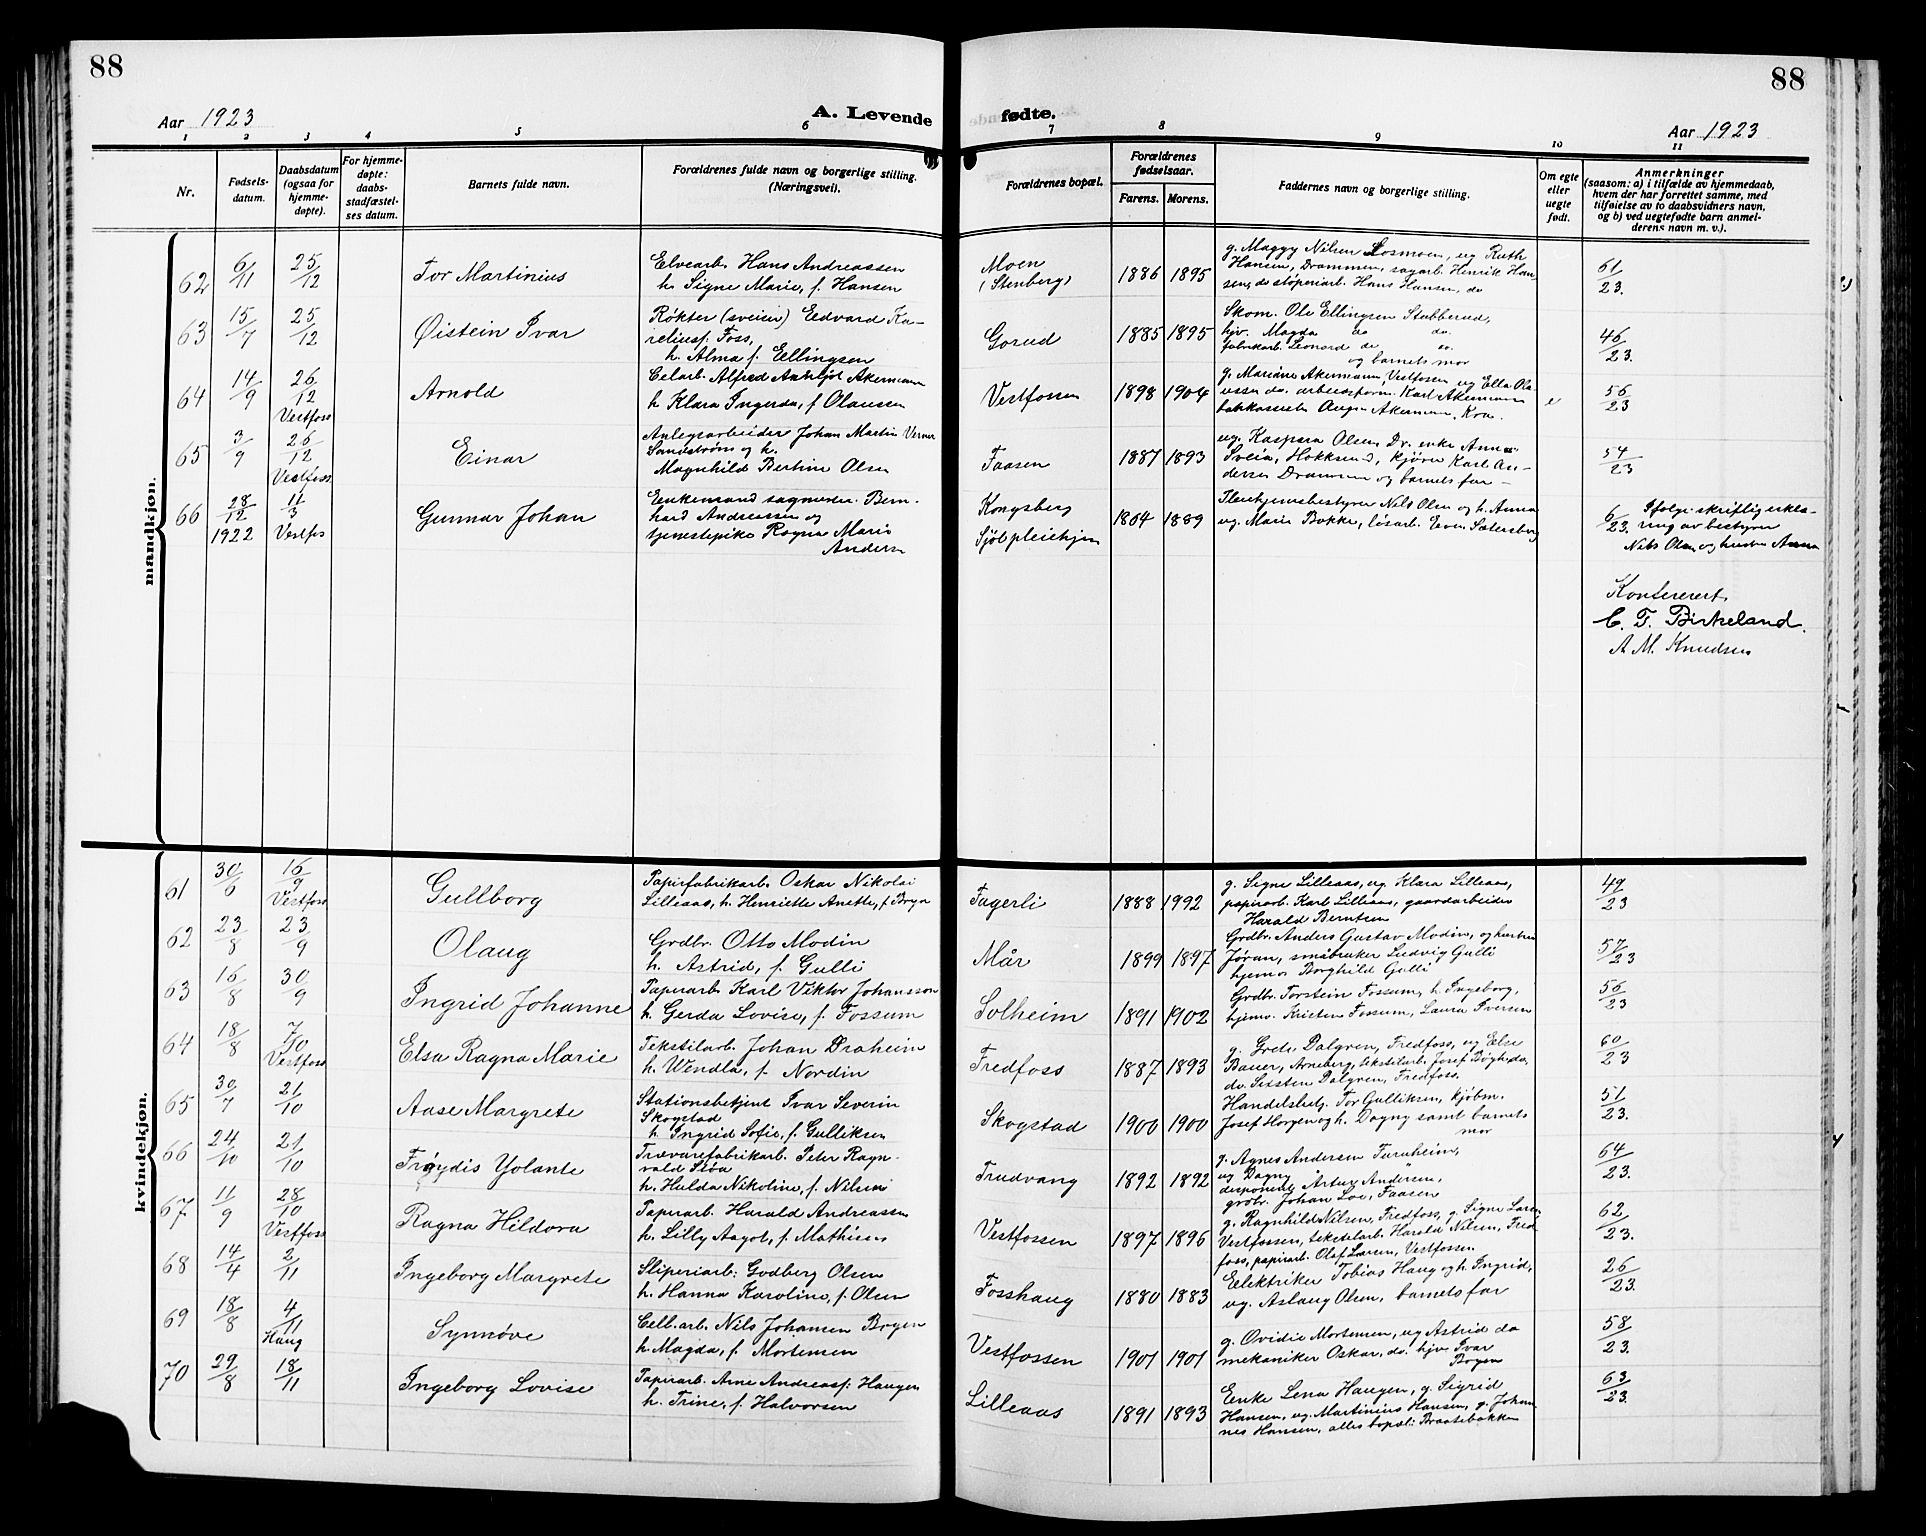 88
88
Aar 1923
A. Levende
fødte.
Aar 1923
1 2 3 4 5 6 7 8 9 10 11
Nr.
Fødsels-
datum.
Daabsdatum
(ogsaa for
hjemme-
døpte).
For hjemme-
døpte:
daabs-
stadfæstel-
ses datum.
Barnets fulde navn.
Forældrenes fulde navn og borgerlige stilling.
(Næringsvei).
Forældrenes bopæl.
Forældrenes
fødselsaar.
Farens. Morens.
Faddernes navn og borgerlige stilling.
Om egte
eller
uegte
født.
Anmerkninger
(saasom: a) i tilfælde av hjemmedaab,
hvem der har forrettet samme, med
tilføielse av to daabsvidners navn,
og b) ved uegtefødte barn anmel-
derens navn m. v.).
mandkjøn.
62 6/11 25/12 Tor Martinius
Elvearb. Hans Andreassen
h. Signe Marie, f. Hansen
Moen
(Stenberg)
1886 1895
g. Maggy Nilsen Losmoen, ug Ruth
Hansen, Drammen, sagarb. Henrik Han-
sen, do støperiarb. Hans Hansen, do
61/23.
63 15/7 25/12 Øistein Ivar
Røkter (sveiser) Edvard Ka-
reliusf. Foss,
h. Alma f. Ellingsen
Gorud
1885 1895
Skom. Ole Ellingsen Stubberud,
hjv. Magda do do.
fabrikarb. Leonard do do.
og barnets mor
46/23.
64 14/9 26/12 Vestfoss Arnold
Celarb. Alfred Akermann
h Klara Ingerda, f Olausen
Vestfossen
1898 1904
g. Mariane Akermann, Vestfossen ug Ella Ola
ussen do. arbeidsform. Karl Akermann
Aug. Akermann, Kra.
e
56/23
65 3/9 26/12 Vestfoss Einar
Anlegsarbeider Johan Martin Verner
Sandstrøm og h.
Magnhild Bertine Olsen
Faasen
1887 1893
ug. Kaspara Olsen Dr. enke Anna
Sveia, Hokksund, kjører Karl An-
dersen Drammen og barnets far -
54/23
66 28/12 1922 11/3 Vestfos Gunnar Johan
Enkemand sagmester Bern-
hard Andreassen og
tjenestepike Ragna Marie
Andersen
Kongsberg
Sjølpleiehjem
1864 1889
Pleiehjemsbestyrer Nils Olsen og h. Anna
ug. Marie Bakke, løsarb. Even Sætersberg
6/23.
Ifølge skriftlig erklæ-
ring av bestyrer
Nils Olsen og hustru Anna
Konfereret.
C. F. Birkeland.
A M. Knudsen
kvindekjøn.
61 30/6 16/9 Vestfoss Gullborg
Papirfabrikarb. Oskar Nikolai
Lilleaas, h. Henriette Anette, f Bryn
Fagerli
1888 1992
g. Signe Lilleaas, ug Klara Lilleaas,
papirarb. Karl Lilleaas, gaardarbeider
Harald Berntsen
49/23
62 23/8 23/9 Olaug
Grdbr. Otto Modin
h. Astrid, f. Gulli
Mår
1899 1897
Grdbr. Anders Gustav Modin, og hustru
Jøran, småbruker Ludvig Gulli
hjemv Borghild Gulli
57/23
63 16/8 30/9 Ingrid Johanne
Papirarb. Karl Viktor Johansson
h. Gerda Lovise, f. Fossum
Solheim
1891 1902
Grdbr. Torstein Fossum, h. Ingeborg,
hjemv. Kristen Fossum, Laura Iversen
56/23
64 18/8 7/10 Vestfoss Elsa Ragna Marie
Tekstilarb. Johan Draheim
h. Wendla, f. Nordin
Fredfoss
1887 1893
g. Grete Dalgren, Fredfoss, ug Else
Bauer, Arneberg, tekstilarb. Josef Bøgh do,
do. Sixsten Dalgren, Fredfoss.
60/23
65 30/7 21/10 Aase Margrete
Stationsbetjent Ivar Severin
Skogstad
h. Ingrid Sofie, f. Gulliksen
Skogstad
1900 1900
Handelsbetj. Tor Gulliksen, kjøbm.
Josef Horgen og h. Dagny samt barnets
mor
51/23.
66 24/10 21/10 Frøydis Yolante
Trævarefabrikarb. Peter Ragn-
vald Sløa
h. Hulda Nikoline, f. Nilsen
Trudvang
1892 1892
g. Agnes Andersen Furuheim,
ug Dagny "
disponent Artur Andersen,
grdbr. Johan Loe, Faasen
64/23.
67 11/9 28/10 Vestfoss Ragna Hildora
Papirarb. Harald Andreassen
h. Lilly Aagot, f. Mathisen
Vestfossen
1897 1896
g. Ragnhild Nilsen, Fredfoss, g. Signe Larsen
Vestfossen, tekstilarb. Harald Nilsen, Fred-
foss, papirarb. Olaf Larsen, Vestfossen.
62/23.
68 14/4 2/11 Ingeborg Margrete
Sliperiarb: Godberg Olsen
h. Hanna Karoline, f. Olsen
Fosshaug
1880 1883
Elektriker Tobias Haug og h. Ingrid,
ug. Aslaug Olsen, barnets far
26/23.
69 18/8 4/11 Haug Synnøve
Cell.arb. Nils Johansen Bogen
h. Magda, f. Mortensen
Vestfossen
1901 1901
g. Ovidie Mortensen, ug Astrid do
mekaniker Oskar, do. hjv. Ivar
Bogen
58/23.
70 29/8 18/11 Ingeborg Lovise
Papirarb. Arne Andreasf. Haugen
h. Trine, f. Halvorsen
Lilleaas
1891 1893
Enke Lena Haugen, g. Sigrid
Hansen, ug. Martinius Hansen, g. Johan
nes Hansen, alles bopæl: Braatebakken
63/23.